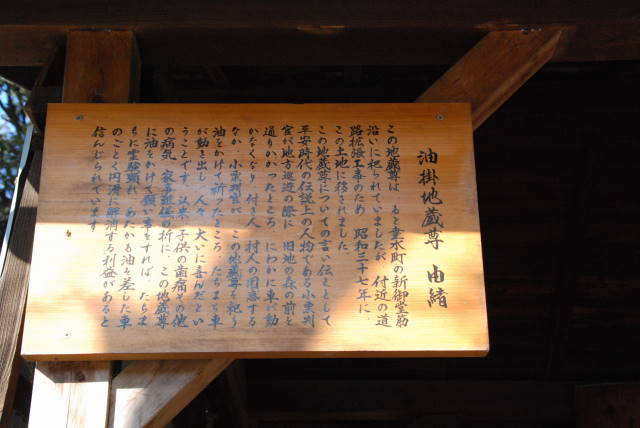 油掛地蔵尊 由緒
この地蔵尊は もと垂水町の新御堂筋
沿いに祀られていましたが 付近の道
路拡張工事のため 昭和三十七年に、
この土地に移されました
この地蔵尊についての言い伝えとして
平安時代の伝説上の人物である小栗判
官が地方巡遊の際に 旧地の森の前を
通りかかったところ にわかに車が動
かなくなり 付き人 村人の用意する
なか、小栗判官が この地蔵尊を祀り
油をかけて祈ったところ たちまち車
が動き出し 人々 大いに喜んだとい
うことです。以来 子供の歯痛その他
の病気 家事近径の折に、この地蔵尊
に油をかけて願い事をすれば、たちま
ちに霊験顕れ あたかも油を差した車
のごとく円滑に解消する利益があると
信んじられています